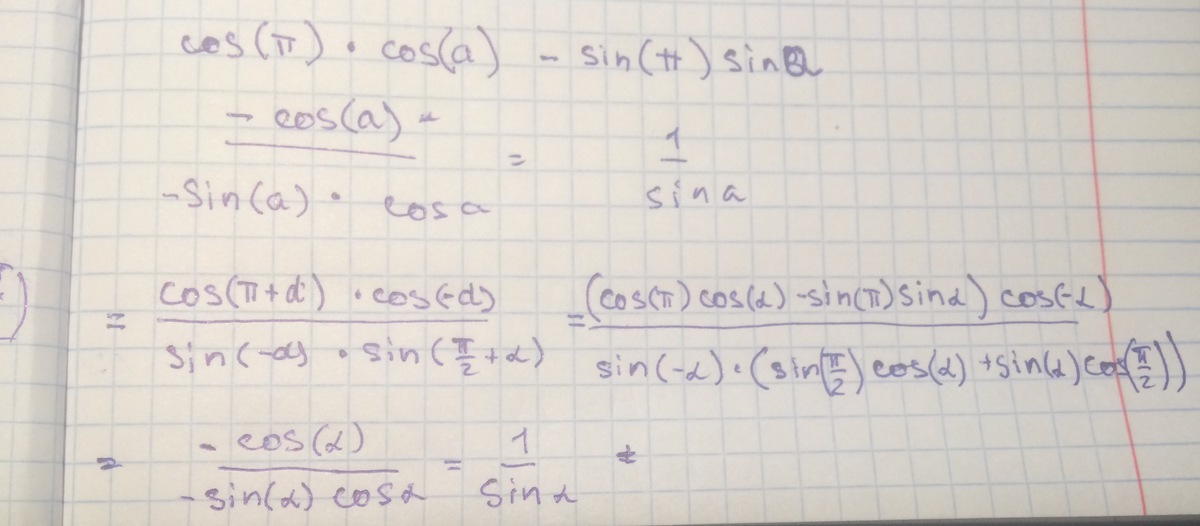 cos(π) · cos(a) - sin(π) sin a
- cos(a) -
-sin(a) · cos a
= 1 / sin a
= cos(π+α) · cos(-α) / sin(-α) · sin(π/2 + α) = (cos(π) cos(α) - sin(π) sin α) cos(-α) / sin(-α) · (sin(π/2) cos(α) + sin(α) cos(π/2))
= - cos(α) / -sin(α) cos α = 1 / sin α =